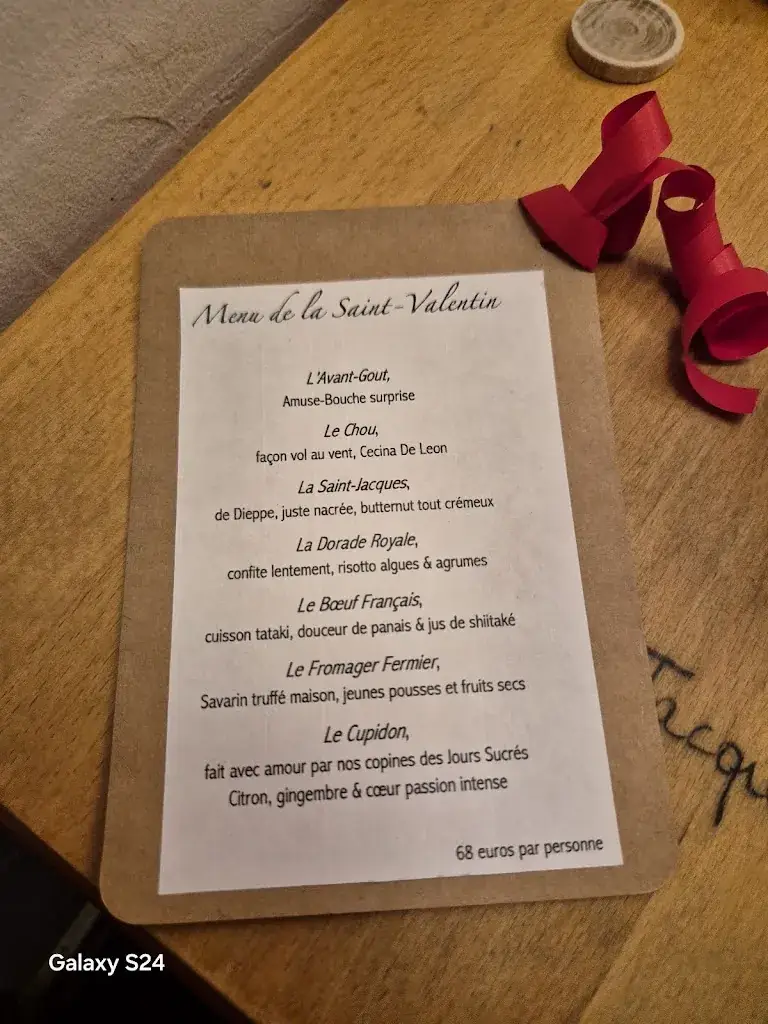 Menu de la Saint-Valentin
L'Avant-Gout,
Amuse-Bouche surprise
Le Chou,
façon vol au vent, Cecina De Leon
La Saint-Jacques,
de Dieppe, juste nacrée, butternut tout crémeux
La Dorade Royale,
confite lentement, risotto algues & agrumes
Le Bœuf Français,
cuisson tataki, douceur de panais & jus de shiitaké
Le Fromager Fermier,
Savarin truffé maison, jeunes pousses et fruits secs
Le Cupidon,
fait avec amour par nos copines des Jours Sucrés
Citron, gingembre & cœur passion intense
68 euros par personne
Galaxy S24